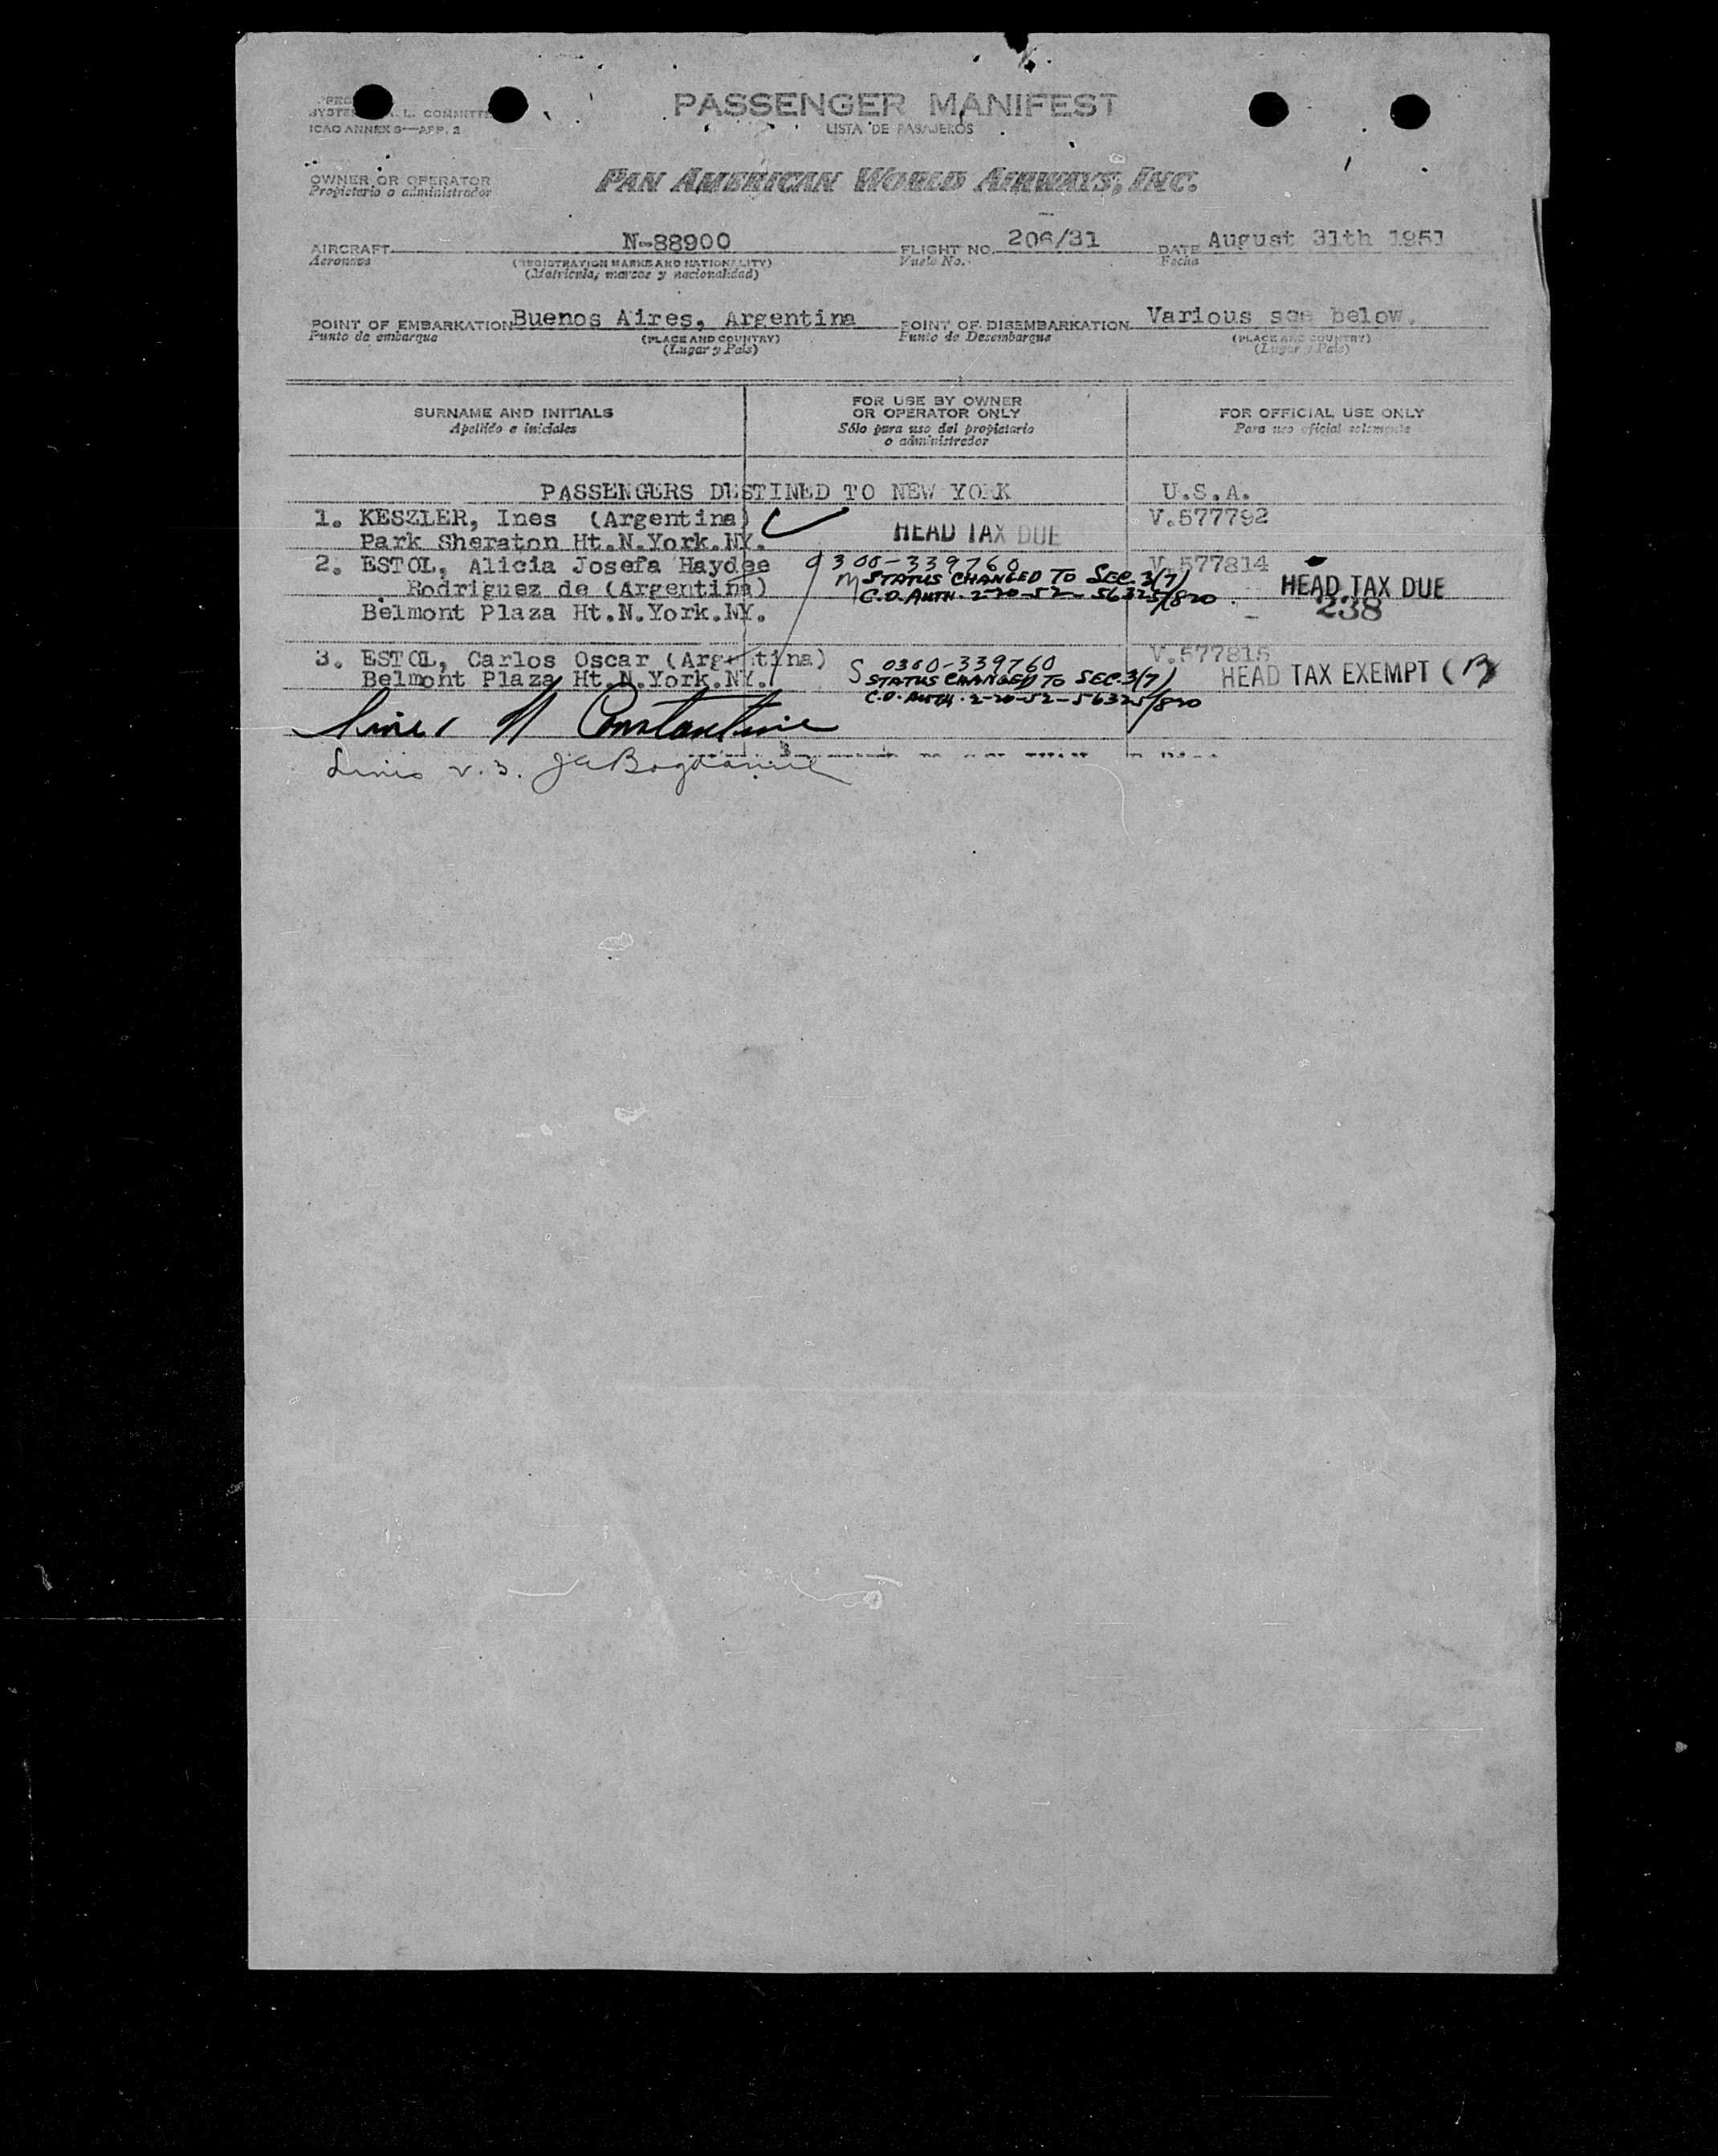 SYSTEM A. L. COMMITTEE
ICAO ANNEX 9—APP. 2
PASSENGER MANIFEST
LISTA DE PASAJEROS
OWNER OR OPERATOR
Propietario o administrador
PAN AMERICAN WORLD AIRWAYS, INC.
AIRCRAFT N-88900 FLIGHT NO. 206/31 DATE August 31th 1951
Aeronave (REGISTRATION MARKS AND NATIONALITY) Vuelo No. Fecha
(Matrícula, marcas y nacionalidad)
POINT OF EMBARKATION Buenos Aires, Argentina POINT OF DISEMBARKATION Various see below.
Punto de embarque (PLACE AND COUNTRY) Punto de Desembarque (PLACE AND COUNTRY)
(Lugar y País) (Lugar y País)
SURNAME AND INITIALS
Apellido e iniciales
FOR USE BY OWNER
OR OPERATOR ONLY
Sólo para uso del propietario
o administrador
FOR OFFICIAL USE ONLY
Para uso oficial solamente
PASSENGERS DESTINED TO NEW YORK U.S.A.
1. KESZLER, Ines (Argentina) HEAD TAX DUE V.577792
Park Sheraton Ht.N.York.NY.
2. ESTOL, Alicia Josefa Haydee 0300-339760 V.577814
Rodriguez de (Argentina) M STATUS CHANGED TO SEC. 3(7) HEAD TAX DUE
C.O. AUTH. 2-20-52- 56325/820 238
Belmont Plaza Ht.N.York.NY.
3. ESTOL, Carlos Oscar (Argentina) S 0300-339760 V.577815
Belmont Plaza Ht.N.York.NY. STATUS CHANGED TO SEC. 3(7) HEAD TAX EXEMPT (B)
C.O. AUTH. 2-20-52-56325/820
Constantine